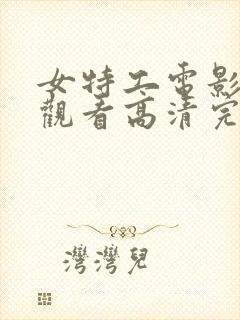 女特工電影
觀看高清完
灣灣兒